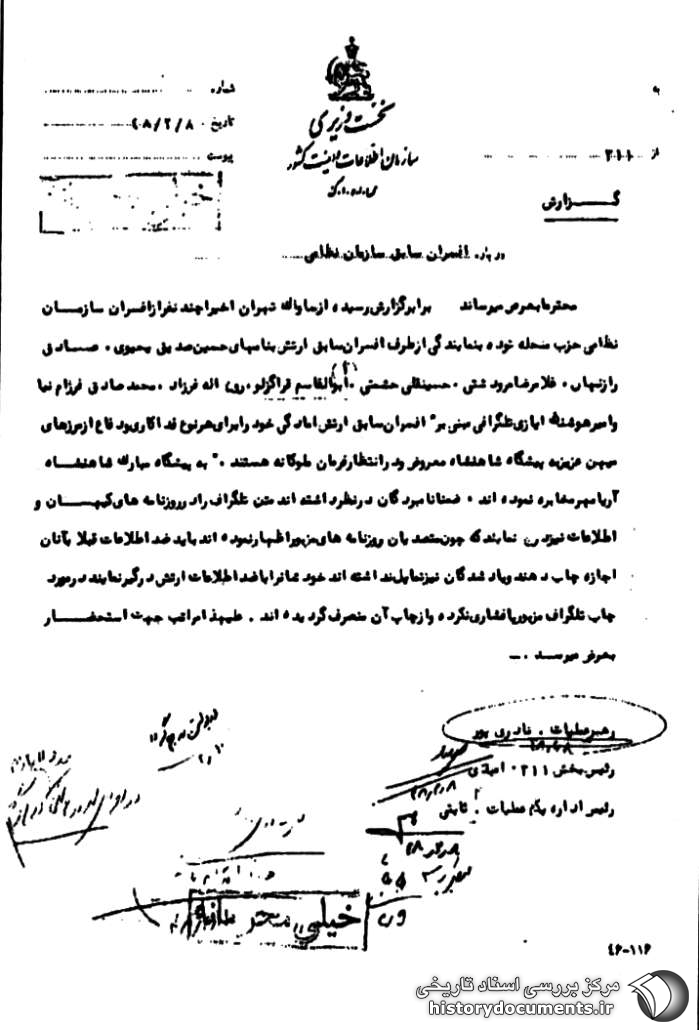 به
شماره
نخست وزیری
تاریخ ۴۸/۲/۸
سازمان اطلاعات و امنیت کشور
از ۲۱۱
پیوست
س.ا.و.ا.ک
گزارش
درباره افسران سابق سازمان نظامی
محترما بعرض میرساند برابر گزارش رسیده از ساواک تهران اخیرا چند نفر از افسران سازمان
نظامی حزب منحله توده بنمایندگی از طرف افسران سابق ارتش بنامهای حسین صدیق یحیوی ۰ صادق
رازنهان ۰ غلامرضا مرودشتی ۰ حسینقلی حشمتی ۰ ابوالقاسم قراگزلو ۰ روح اله فرزاد ۰ محمد صادق فرزام نما
و امیرهوشنگ ایازی تلگرافی مبنی بر " افسران سابق ارتش امادگی خود را برای هر نوع فداکاری و دفاع از مرزهای
میهن عزیز به پیشگاه شاهنشاه معروض و در انتظار فرمان ملوکانه هستند ۰" به پیشگاه مبارک شاهنشاه
آریامهر مخابره نموده اند ۰ ضمنا نامبردگان در نظر داشته اند متن تلگراف را در روزنامه های کیهان و
اطلاعات نیز درج نمایند که چون متصدیان روزنامه های مزبور اظهار نموده اند باید ضد اطلاعات قبلا بآنان
اجازه چاپ دهند و یاد شدگان نیز تمایل نداشته اند خودشانرا با ضد اطلاعات ارتش درگیر نمایند در مورد
چاپ تلگراف مزبور پافشاری نکرده و از چاپ آن منصرف گردیده اند ۰ علیهذا مراتب جهت استحضار
بعرض میرسد ۰ـ
رهبر عملیات ۰ نادری پور
رئیس بخش ۲۱۱ ۰ امیدی
رئیس اداره یکم عملیات ۰ ثابتی
خیلی محرمانه
۴۶-۱۱۶
مرکز بررسی اسناد تاریخی
historydocuments.ir